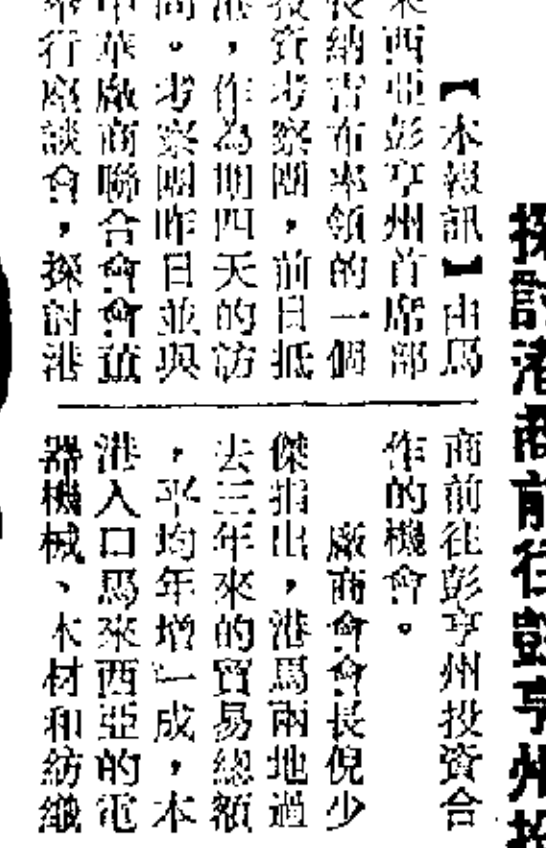 探討港商前往彭亨州投
【本報訊】由馬
來西亞彭亨州首席部
長納吉布率領的一個
投資考察團，前日抵
港，作為期四天的訪
問。考察團昨日並與
中華廠商聯合會會董
舉行座談會，探討港
商前往彭亨州投資合
作的機會。
廠商會會長倪少
傑指出，港馬兩地過
去三年來的貿易總額
，平均年增一成，本
港入口馬來西亞的電
器機械、木材和紡織